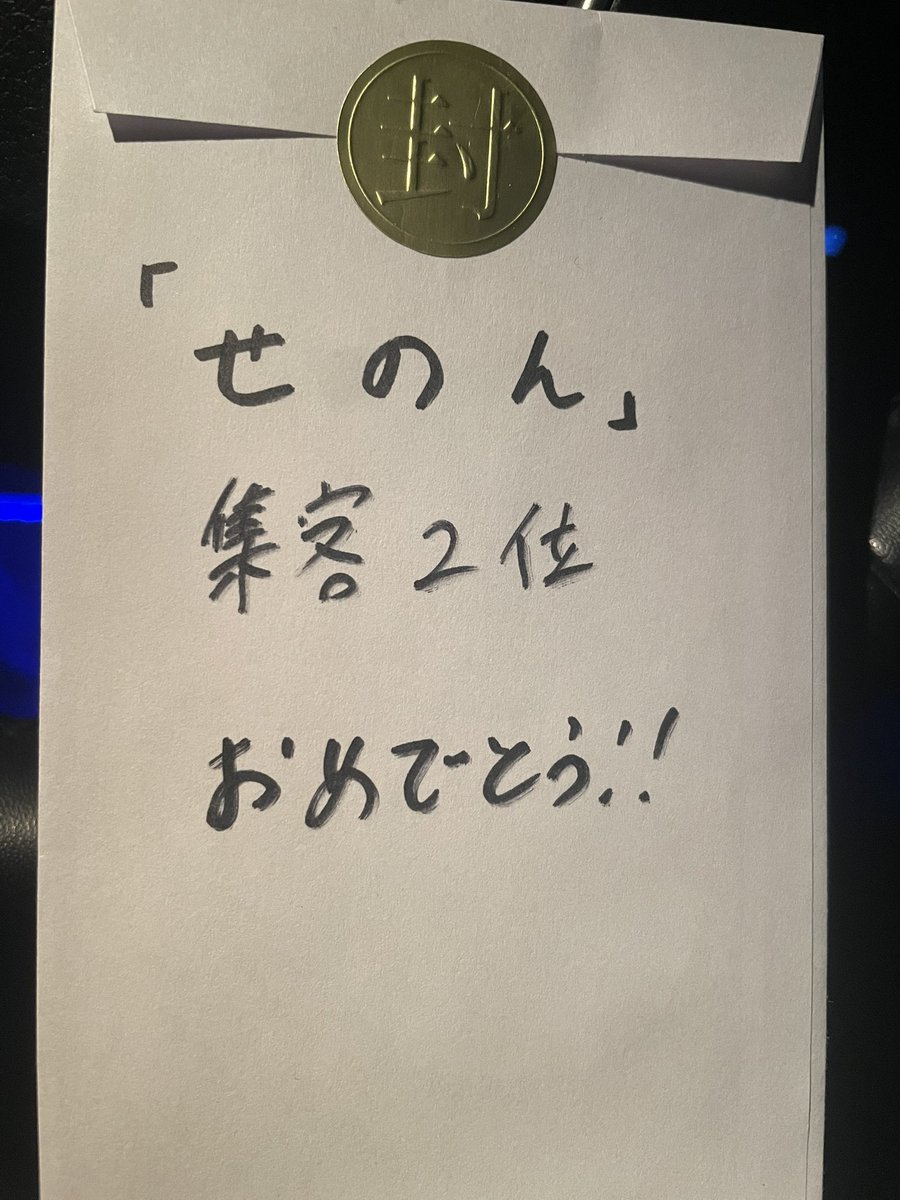 封
「せのん」
集客2位
おめでとう!!